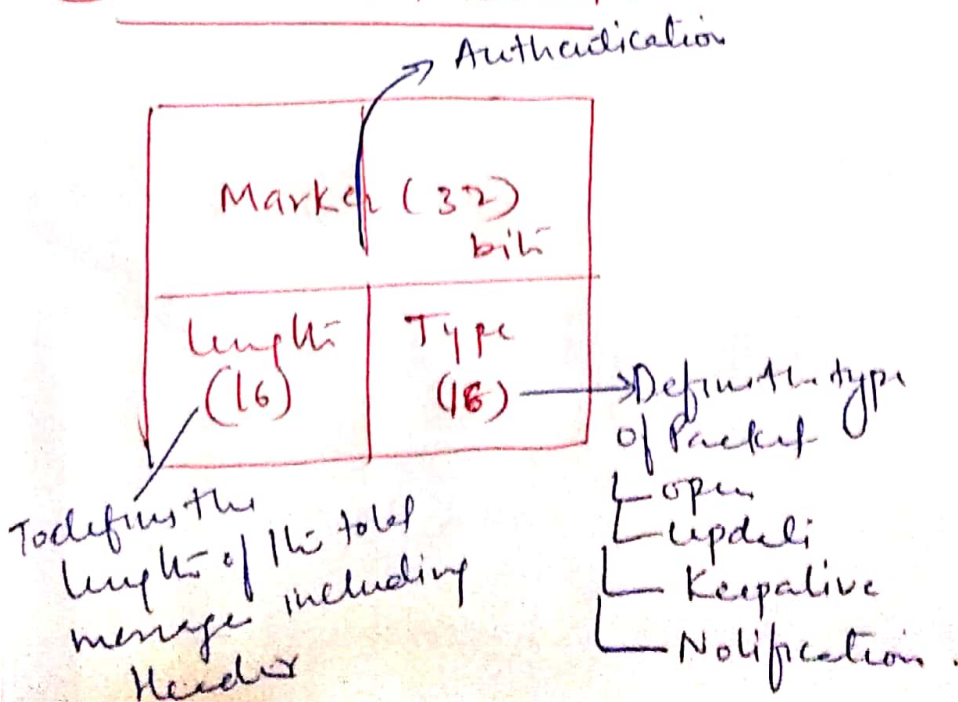 Authentication
Marker (32)
bits
Length
(16)
Type
(16)
Define the type
of Packet
open
update
Keepalive
Notification.
To define the
length of the total
message including
Header